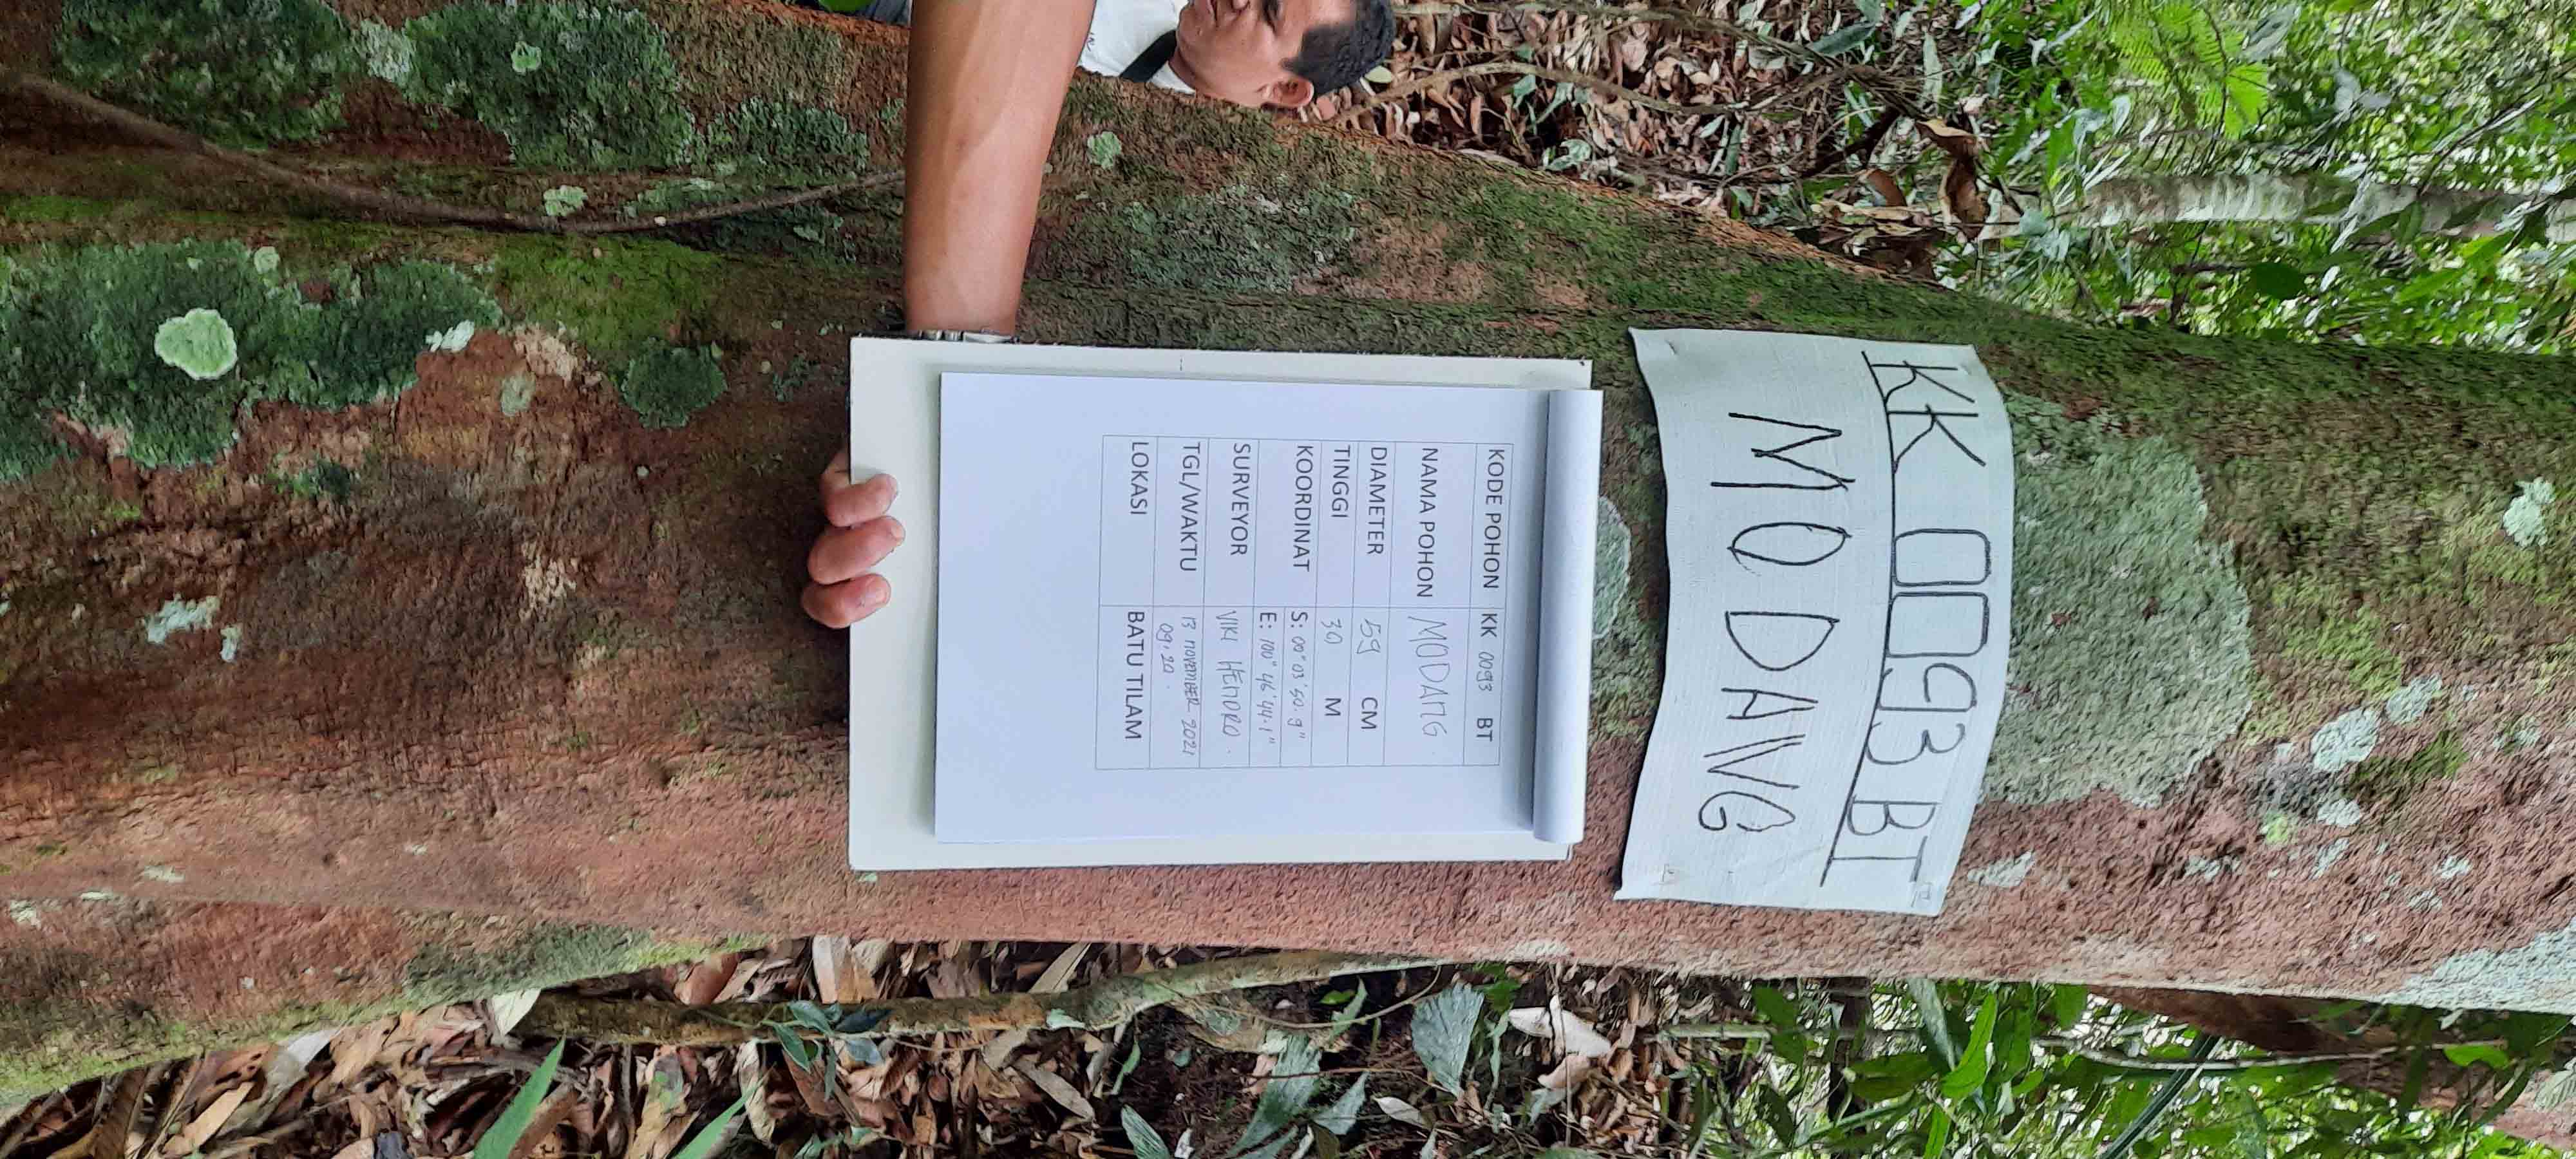 KK 0093 BT
MODANG
KODE POHON KK 0093 BT
NAMA POHON MODANG.
DIAMETER 59 CM
TINGGI 30 M
KOORDINAT S: 00° 03' 50.9"
E: 100° 46' 44.1"
SURVEYOR VIKI HENDRO.
TGL/WAKTU 13 NOVEMBER 2021
09.20.
LOKASI BATU TILAM